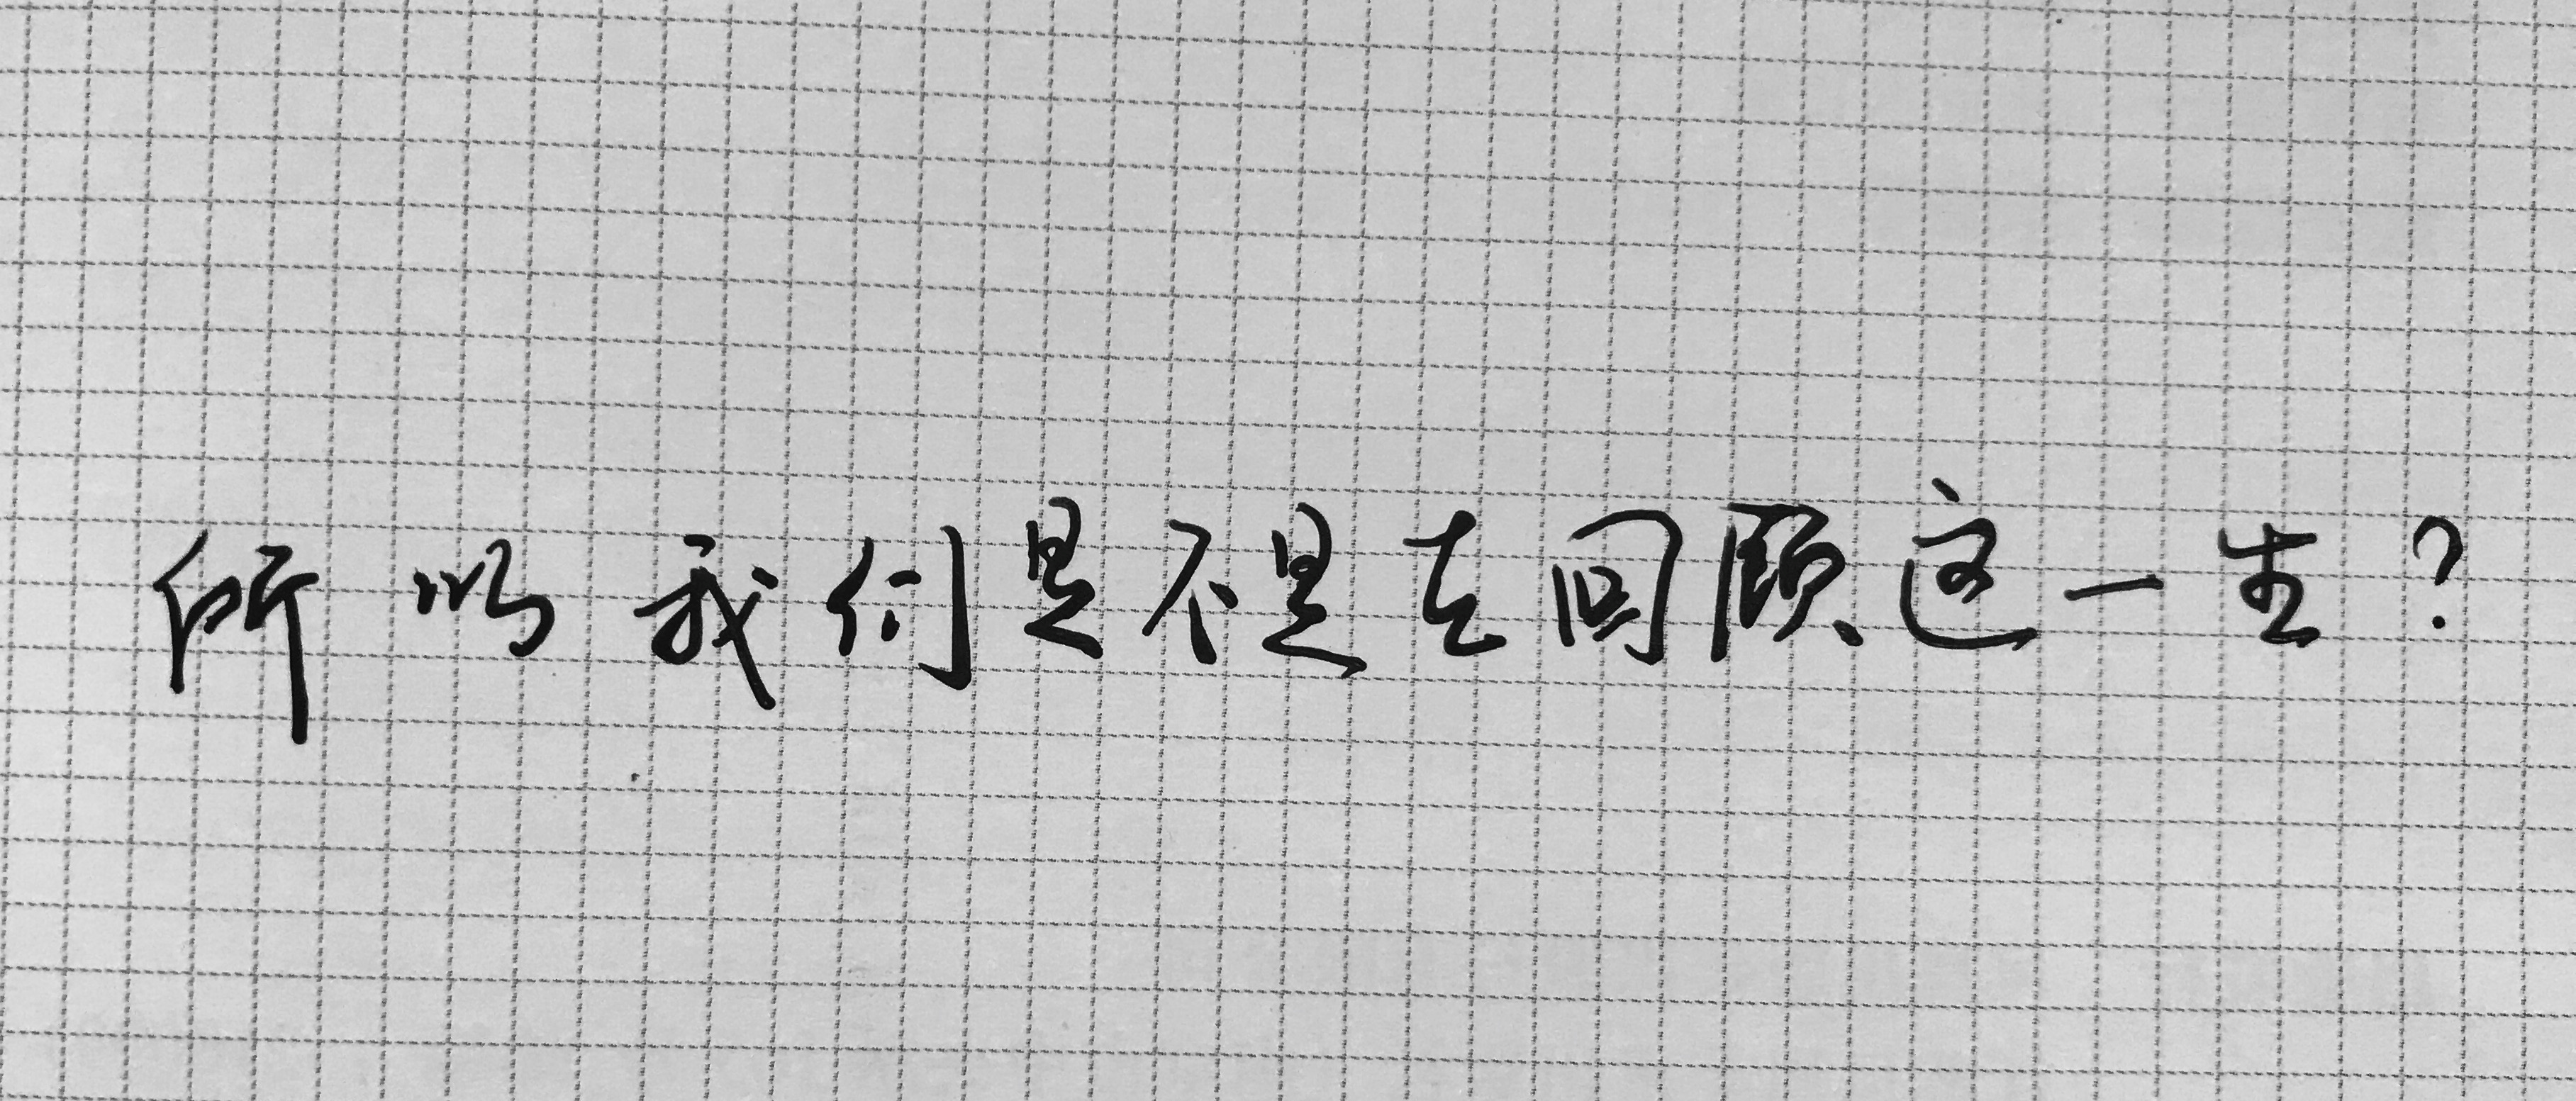 所以我们是不是在回顾这一生?